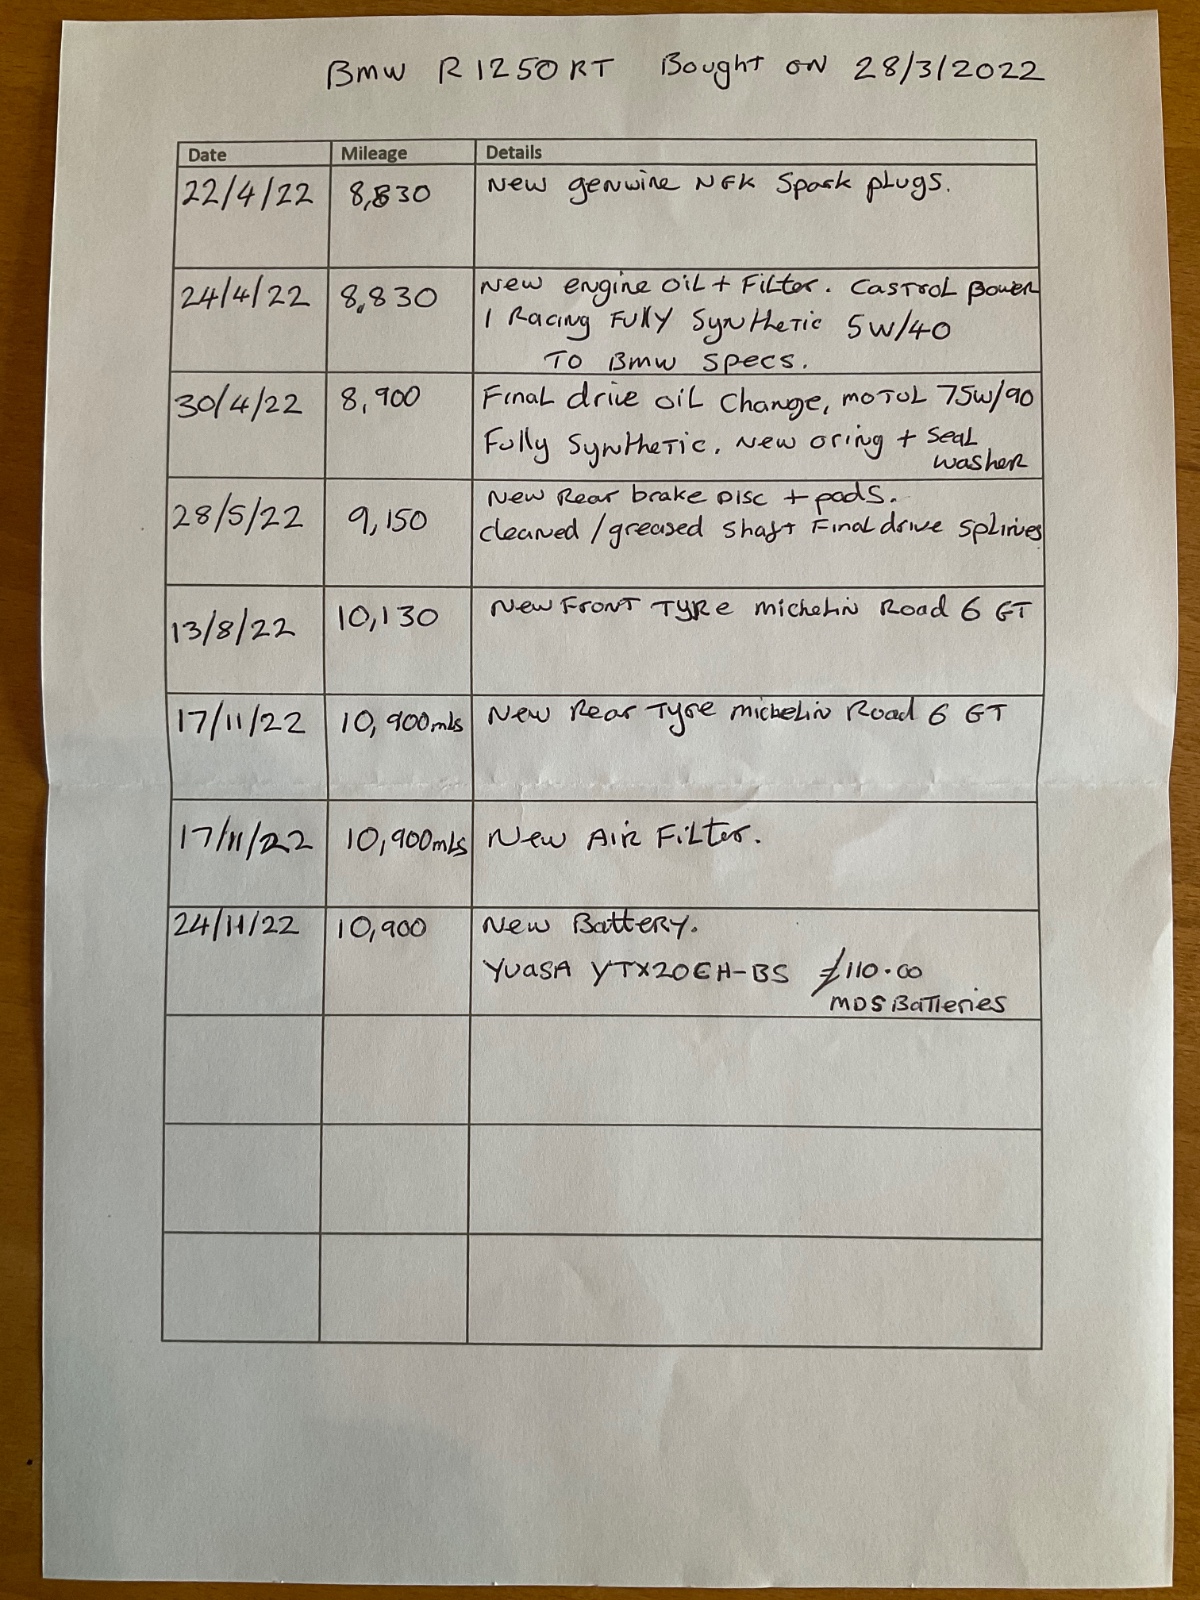 BMW R1250RT Bought on 28/3/2022
Date Mileage Details
22/4/22 8,830 New genuine NGK Spark plugs.
24/4/22 8,830 New engine oil + Filter. Castrol Power
1 Racing Fully Synthetic 5W/40
To BMW Specs.
30/4/22 8,900 Final drive oil change, Motul 75W/90
Fully Synthetic, new oring + seal
washer
28/5/22 9,150 New Rear brake Disc + pads.
cleaned/greased shaft Final drive splines
13/8/22 10,130 New Front Tyre michelin Road 6 GT
17/11/22 10,900mls New Rear Tyre michelin Road 6 GT
17/11/22 10,900mls New Air Filter.
24/11/22 10,900 New Battery.
YUASA YTX20CH-BS £110.00
MDS Batteries